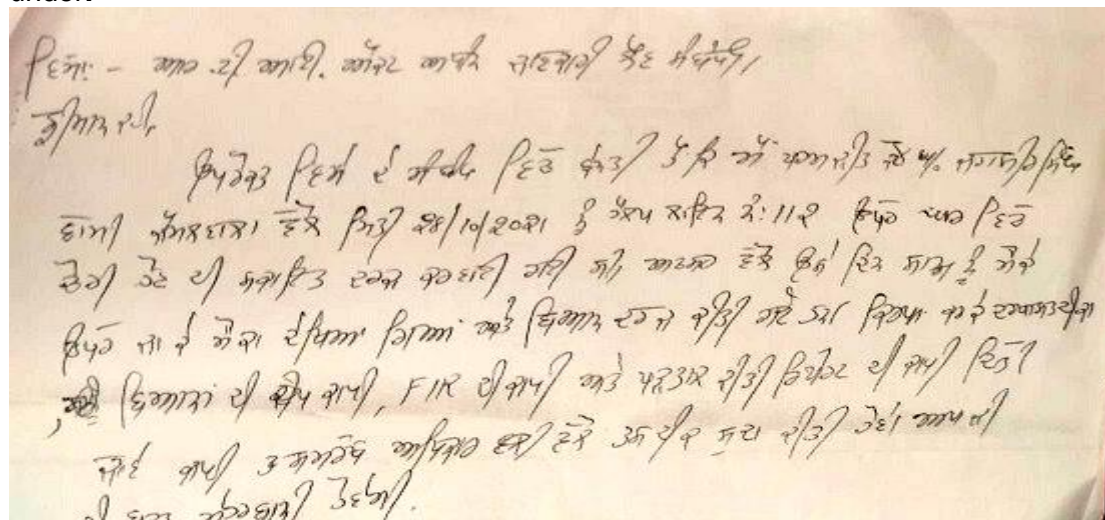 ਵਿਸ਼ਾ:- ਆਰ.ਟੀ.ਆਈ. ਐਕਟ ਅਧੀਨ ਜਾਣਕਾਰੀ ਲੈਣ ਸੰਬੰਧੀ,
ਸ਼੍ਰੀਮਾਨ ਜੀ,
ਉਪਰੋਕਤ ਵਿਸ਼ੇ ਦੇ ਸੰਬੰਧ ਵਿੱਚ ਬੇਨਤੀ ਹੈ ਕਿ ਮੈਂ
ਵਾਸੀ ਵੱਲੋਂ ਮਿਤੀ 28/10/2021 ਨੂੰ ਹੈਲਪ ਲਾਇਨ ਨੰ: 112 ਉਪਰ ਘਰ ਵਿੱਚ
ਚੋਰੀ ਹੋਣ ਦੀ ਸ਼ਕਾਇਤ ਦਰਜ ਕਰਵਾਈ ਗਈ ਸੀ, ਵੱਲੋਂ ਉਸੇ ਦਿਨ ਸ਼ਾਮ ਨੂੰ ਮੌਕੇ
ਉਪਰ ਜਾ ਕੇ ਮੌਕਾ ਦੇਖਿਆ ਗਿਆ ਅਤੇ ਬਿਆਨ ਦਰਜ ਕੀਤੇ ਗਏ ਸਨ। ਕਿਰਪਾ ਕਰਕੇ
ਬਿਆਨਾਂ ਦੀ ਕਾਪੀ, FIR ਦੀ ਕਾਪੀ ਅਤੇ ਪੜਤਾਲ ਕੀਤੀ ਰਿਪੋਰਟ ਦੀ ਕਾਪੀ ਦਿੱਤੀ
ਜਾਵੇ ਕਾਪੀ ਅਧਿਕਾਰੀ ਵੱਲੋਂ ਤਸਦੀਕ ਸ਼ੁਦਾ ਕੀਤੀ ਹੋਵੇ। ਆਪ ਜੀ
ਦੀ ਮੇਹਰਬਾਨੀ ਹੋਵੇਗੀ.